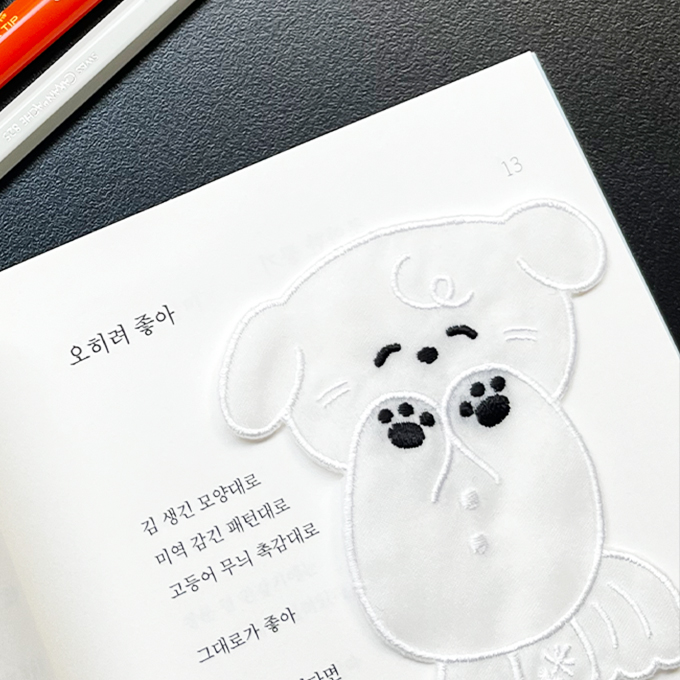 TIP
13
오히려 좋아
김 생긴 모양대로
미역 감긴 패턴대로
고등어 무늬 촉감대로
그대로가 좋아